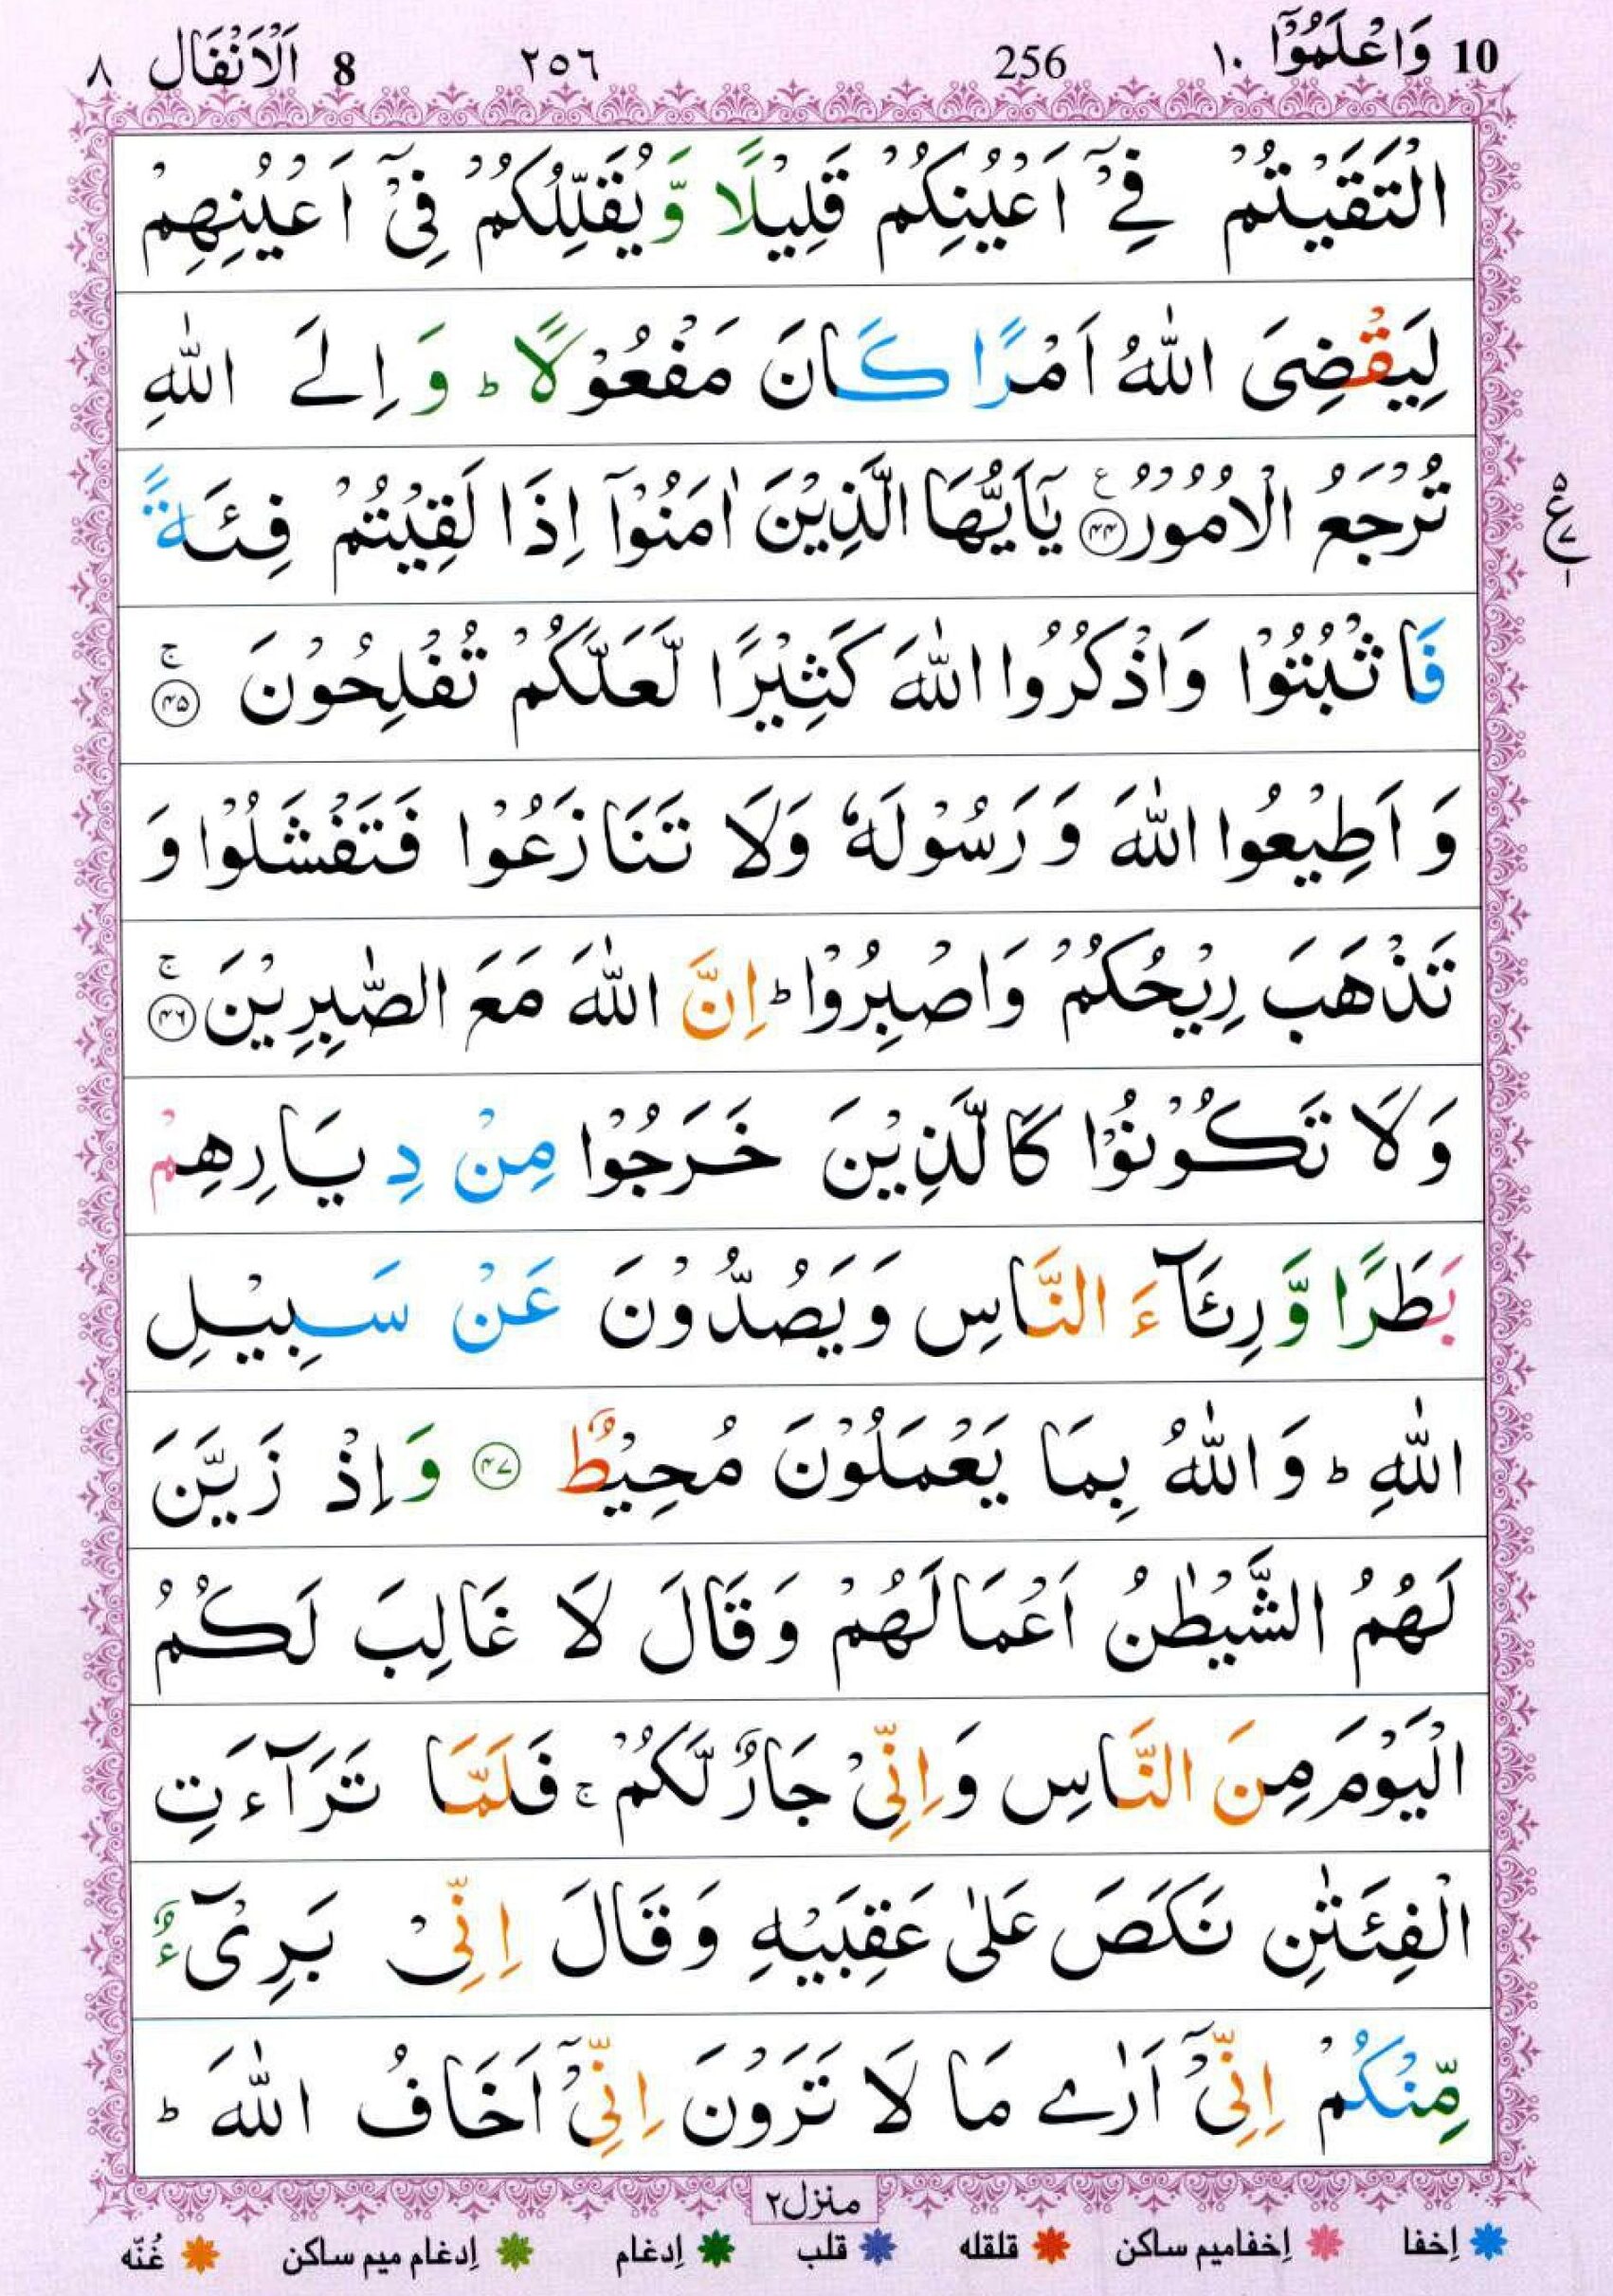 10 وَاعْلَمُوْٓا ١٠ 256 ٢٥٦ 8 اَلْاَنْفَال ٨
الْتَقَيْتُمْ فِيْٓ اَعْيُنِكُمْ قَلِيْلًا وَّيُقَلِّلُكُمْ فِيْٓ اَعْيُنِهِمْ
لِيَقْضِيَ اللّٰهُ اَمْرًا كَانَ مَفْعُوْلًا ؕ وَ اِلَى اللّٰهِ
تُرْجَعُ الْاُمُوْرُ ۧ ﴿۴۴﴾ يٰٓاَيُّهَا الَّذِيْنَ اٰمَنُوْٓا اِذَا لَقِيْتُمْ فِئَةً
ع ٥ ٧ ١
فَاثْبُتُوْا وَاذْكُرُوا اللّٰهَ كَثِيْرًا لَّعَلَّكُمْ تُفْلِحُوْنَ ۚ ﴿۴۵﴾
وَ اَطِيْعُوا اللّٰهَ وَ رَسُوْلَهٗ وَلَا تَنَازَعُوْا فَتَفْشَلُوْا وَ
تَذْهَبَ رِيْحُكُمْ وَاصْبِرُوْا ؕ اِنَّ اللّٰهَ مَعَ الصّٰبِرِيْنَ ۚ ﴿۴۶﴾
وَلَا تَكُوْنُوْا كَالَّذِيْنَ خَرَجُوْا مِنْ دِيَارِهِمْ
بَطَرًا وَّرِئَآءَ النَّاسِ وَيَصُدُّوْنَ عَنْ سَبِيْلِ
اللّٰهِ ؕ وَاللّٰهُ بِمَا يَعْمَلُوْنَ مُحِيْطٌ ﴿۴۷﴾ وَاِذْ زَيَّنَ
لَهُمُ الشَّيْطٰنُ اَعْمَالَهُمْ وَقَالَ لَا غَالِبَ لَكُمُ
الْيَوْمَ مِنَ النَّاسِ وَاِنِّيْ جَارٌ لَّكُمْ ۚ فَلَمَّا تَرَآءَتِ
الْفِئَتٰنِ نَكَصَ عَلٰى عَقِبَيْهِ وَقَالَ اِنِّيْ بَرِيْٓءٌ
مِّنْكُمْ اِنِّيْٓ اَرٰى مَا لَا تَرَوْنَ اِنِّيْٓ اَخَافُ اللّٰهَ ؕ
منزل ٢
إخفا إخفاميم ساكن قلقله قلب إدغام إدغام ميم ساكن غُنّه